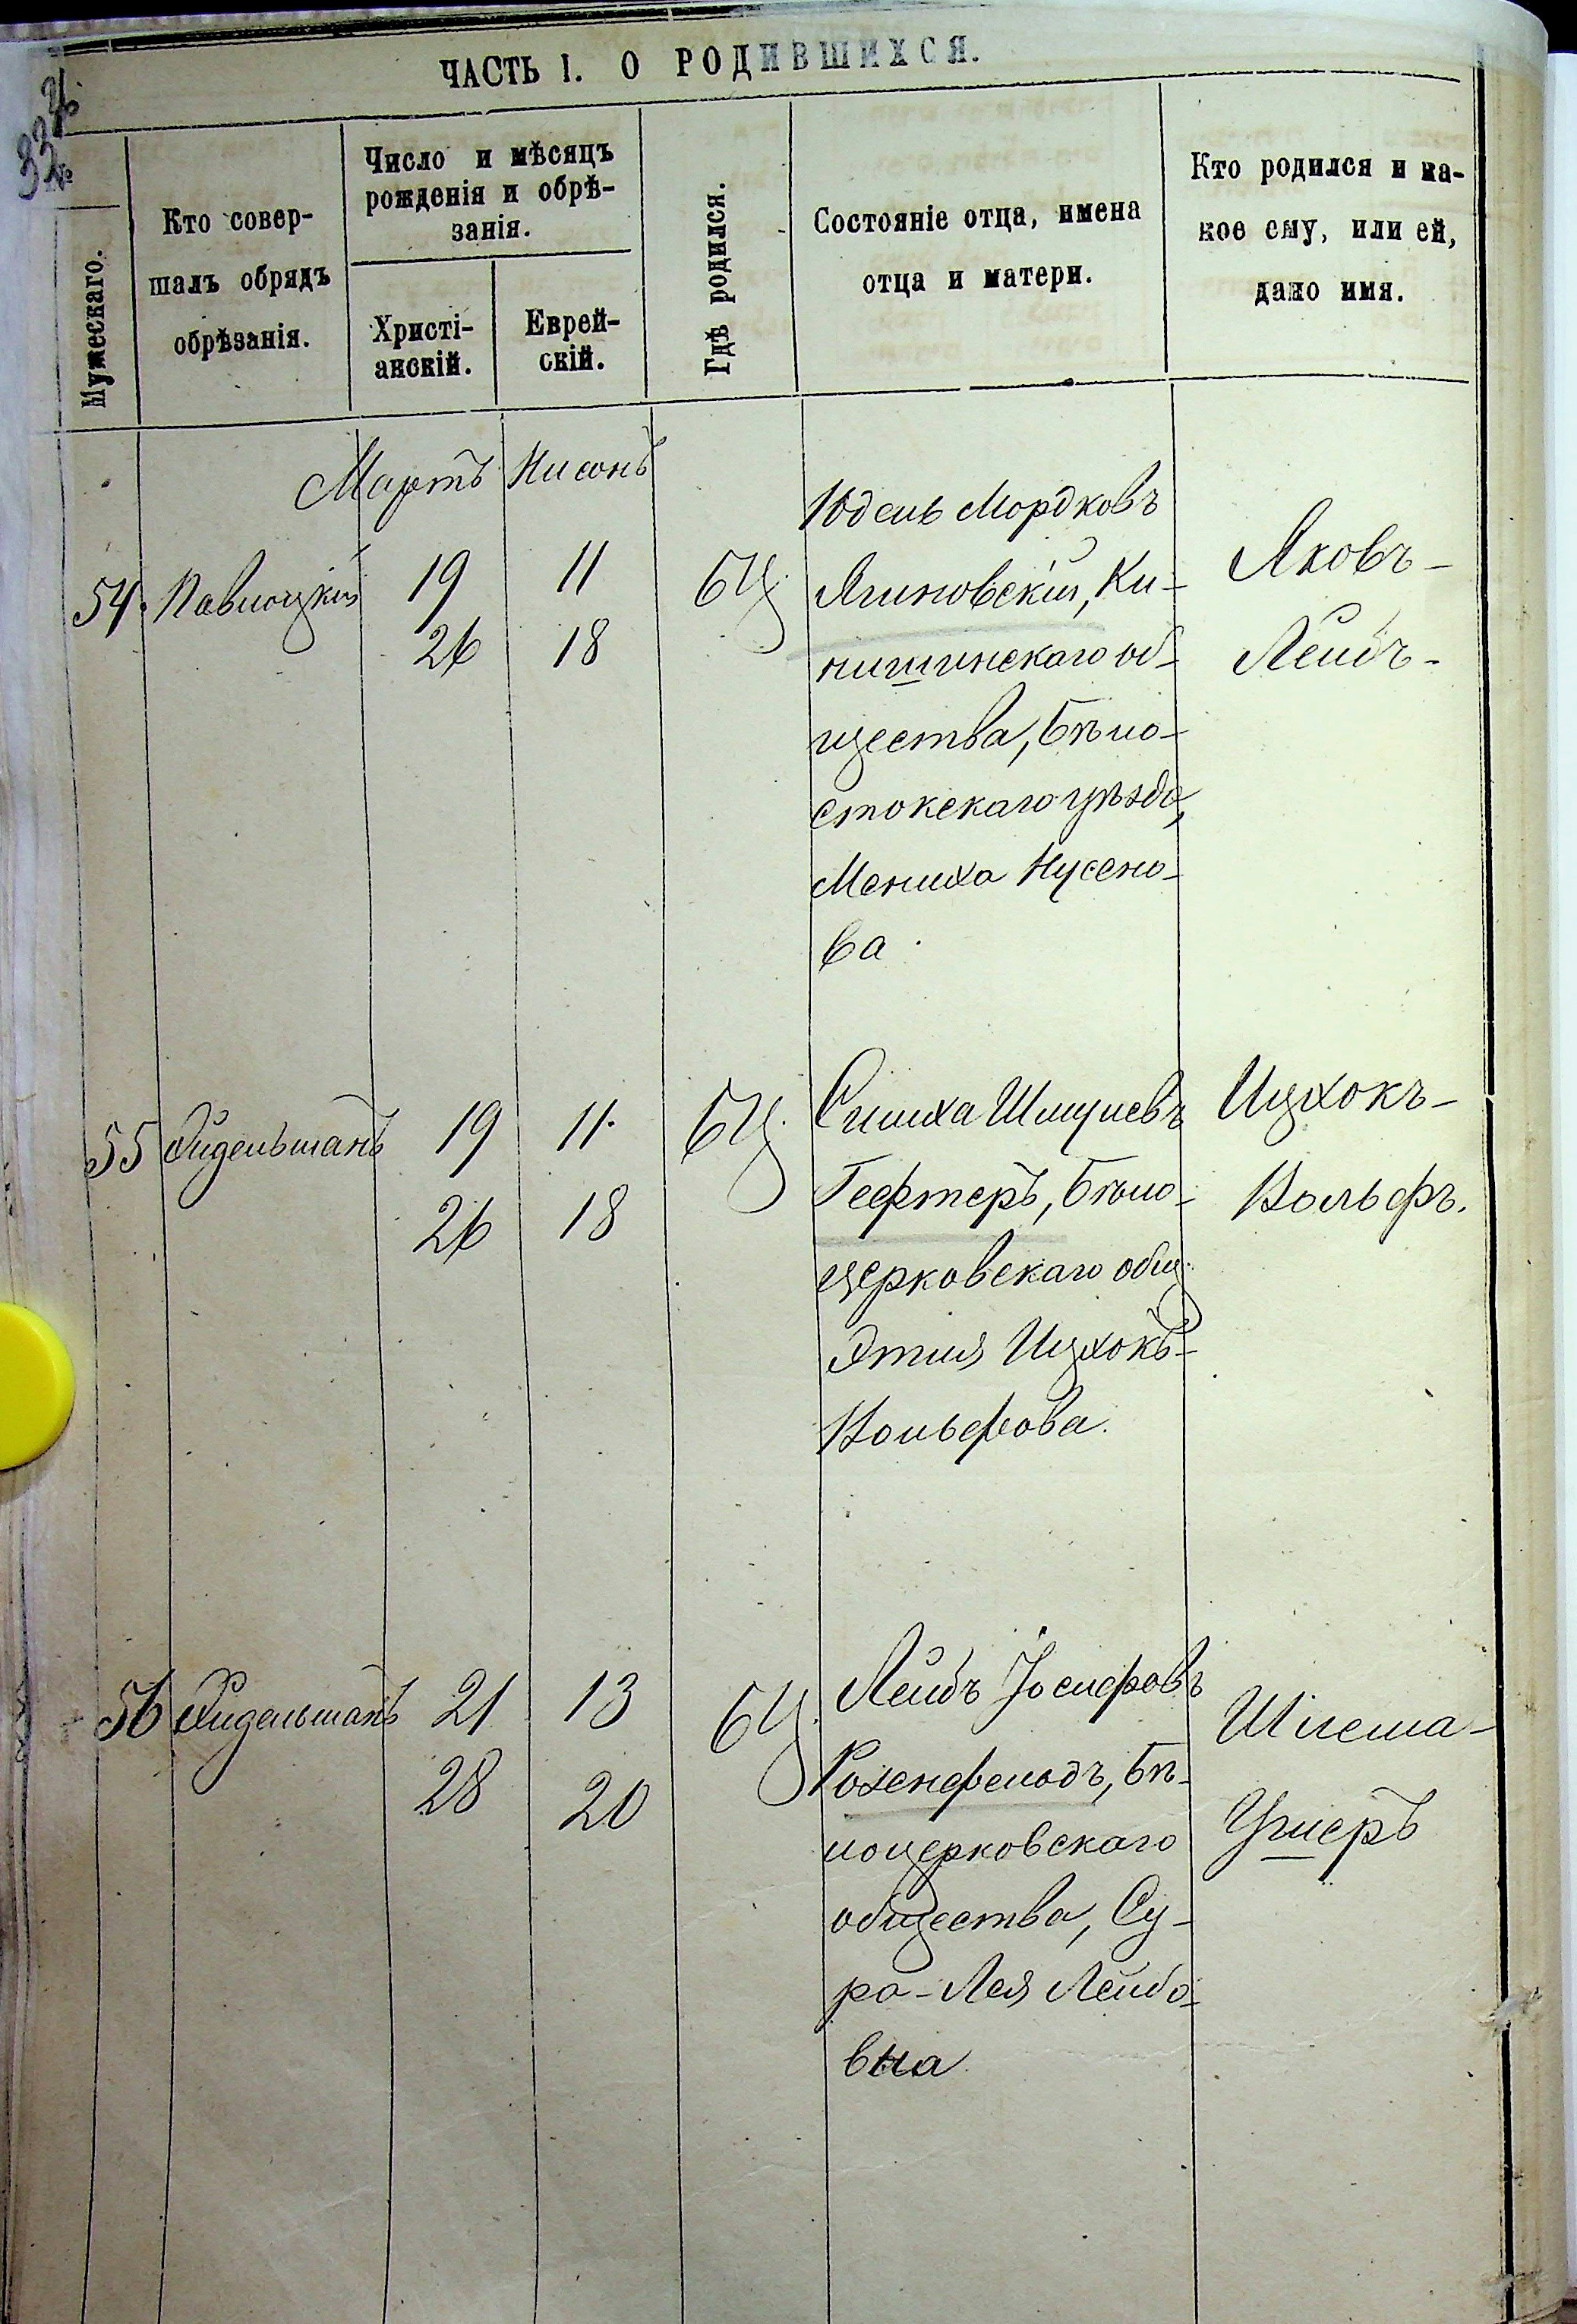 ЧАСТЬ I. О РОДИВШИХСЯ.
№
Мужескаго.
Кто совер-
шалъ обрядъ
обрѣзанія.
Число и мѣсяцъ
рожденія и обрѣ-
занія.
Христі-
анскій.
Еврей-
скій.
Гдѣ родился.
Состояніе отца, имена
отца и матери.
Кто родился и ка-
кое ему, или ей,
дано имя.
Мартъ Нисонъ
54. Павлоцкій 19 11 БЦ.
26 18
Юдель Мордковъ
Ягиновскій, Кн-
нишинскаго об-
щества, Бѣло-
стокскаго уѣзда,
Мениха Нусено-
ва.
Яковъ-
Лейбъ-
55 Эйдельманъ 19 11. БЦ.
26 18
Симха Шмулевъ
Гефтеръ, Бѣло-
церковскаго общ.
Этля Ицхокъ-
Вольфова.
Ицхокъ-
Вольфъ.
56 Эйдельманъ 21 13 БЦ.
28 20
Лейбъ Іосифовъ
Розенфельдъ, Бѣ-
лоцерковскаго
общества, Су-
ра-Лея Лейбо-
вна
Шлема-
Ушеръ